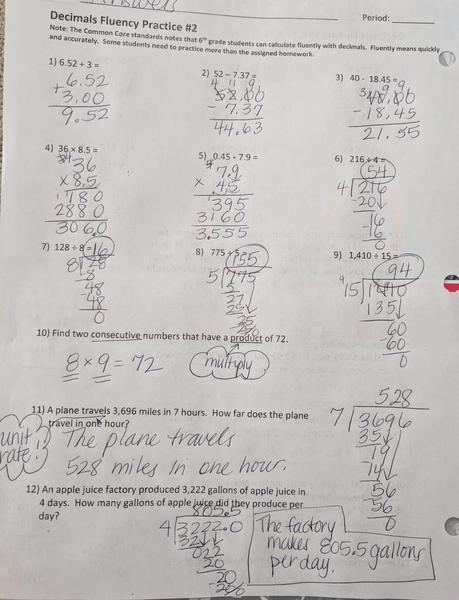 Answers
Decimals Fluency Practice #2
Period:
Note: The Common Core standards notes that 6th grade students can calculate fluently with decimals. Fluently means quickly
and accurately. Some students need to practice more than the assigned homework.
1) 6.52 + 3 =
6.52
+ 3.00
9.52
2) 52 – 7.37 =
4 11 9
52.00
- 7.37
44.63
3) 40 - 18.45 =
3 9 9
40.00
- 18.45
21.55
4) 36 x 8.5 =
36
x 8.5
180
2880
306.0
5) 0.45 • 7.9 =
7.9
x .45
395
3160
3.555
6) 216 ÷ 4 =
54
4 216
-20
16
-16
0
7) 128 ÷ 8 = 16
8 128
-8
48
-48
0
8) 775 ÷ 5 =
155
5 775
5
27
25
25
25
0
9) 1,410 ÷ 15 =
94
15 1410
135
60
60
0
10) Find two consecutive numbers that have a product of 72.
8 x 9 = 72
multiply
11) A plane travels 3,696 miles in 7 hours. How far does the plane
travel in one hour?
unit
rate!
The plane travels
528 miles in one hour.
528
7 3696
35
19
14
56
-56
0
12) An apple juice factory produced 3,222 gallons of apple juice in
4 days. How many gallons of apple juice did they produce per
day?
805.5
4 3222.0
32
022
20
20
20
The factory
makes 805.5 gallons
per day.